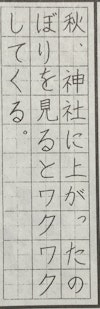 秋、神社に上がったの
ぼりを見るとワクワク
してくる。